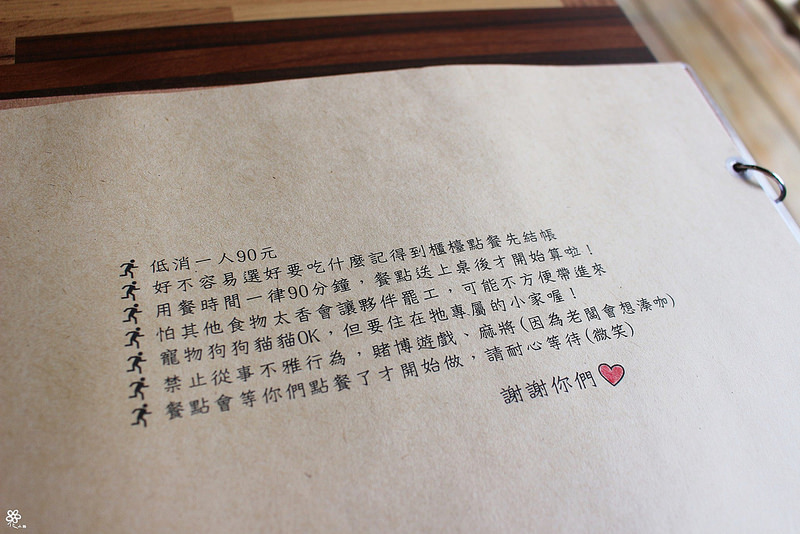 低消一人90元
好不容易選好要吃什麼記得到櫃檯點餐先結帳
用餐時間一律90分鐘，餐點送上桌後才開始算啦！
怕其他食物太香會讓夥伴罷工，可能不方便帶進來
寵物狗狗貓貓OK，但要住在牠專屬的小家喔！
禁止從事不雅行為，賭博遊戲、麻將(因為老闆會想湊咖)
餐點會等你們點餐了才開始做，請耐心等待(微笑)
謝謝你們